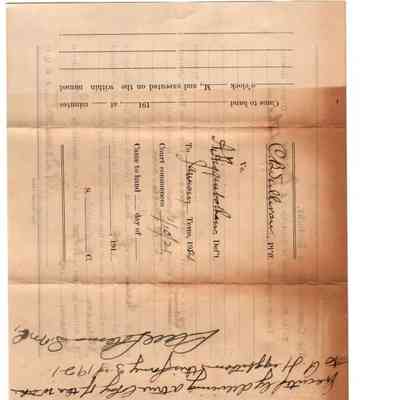 Came to hand 191 , at minutes
o'clock M., and executed on the within named
C B Sullivan, Pl'ff.
Vs.
A. Higginbotham Def't.
To January Term, 1921
Court commences 1/10/21
Came to hand day of
191
S. C.
Executed by delivering a true copy of the within
to A Higginbotham this Jany 3 1921